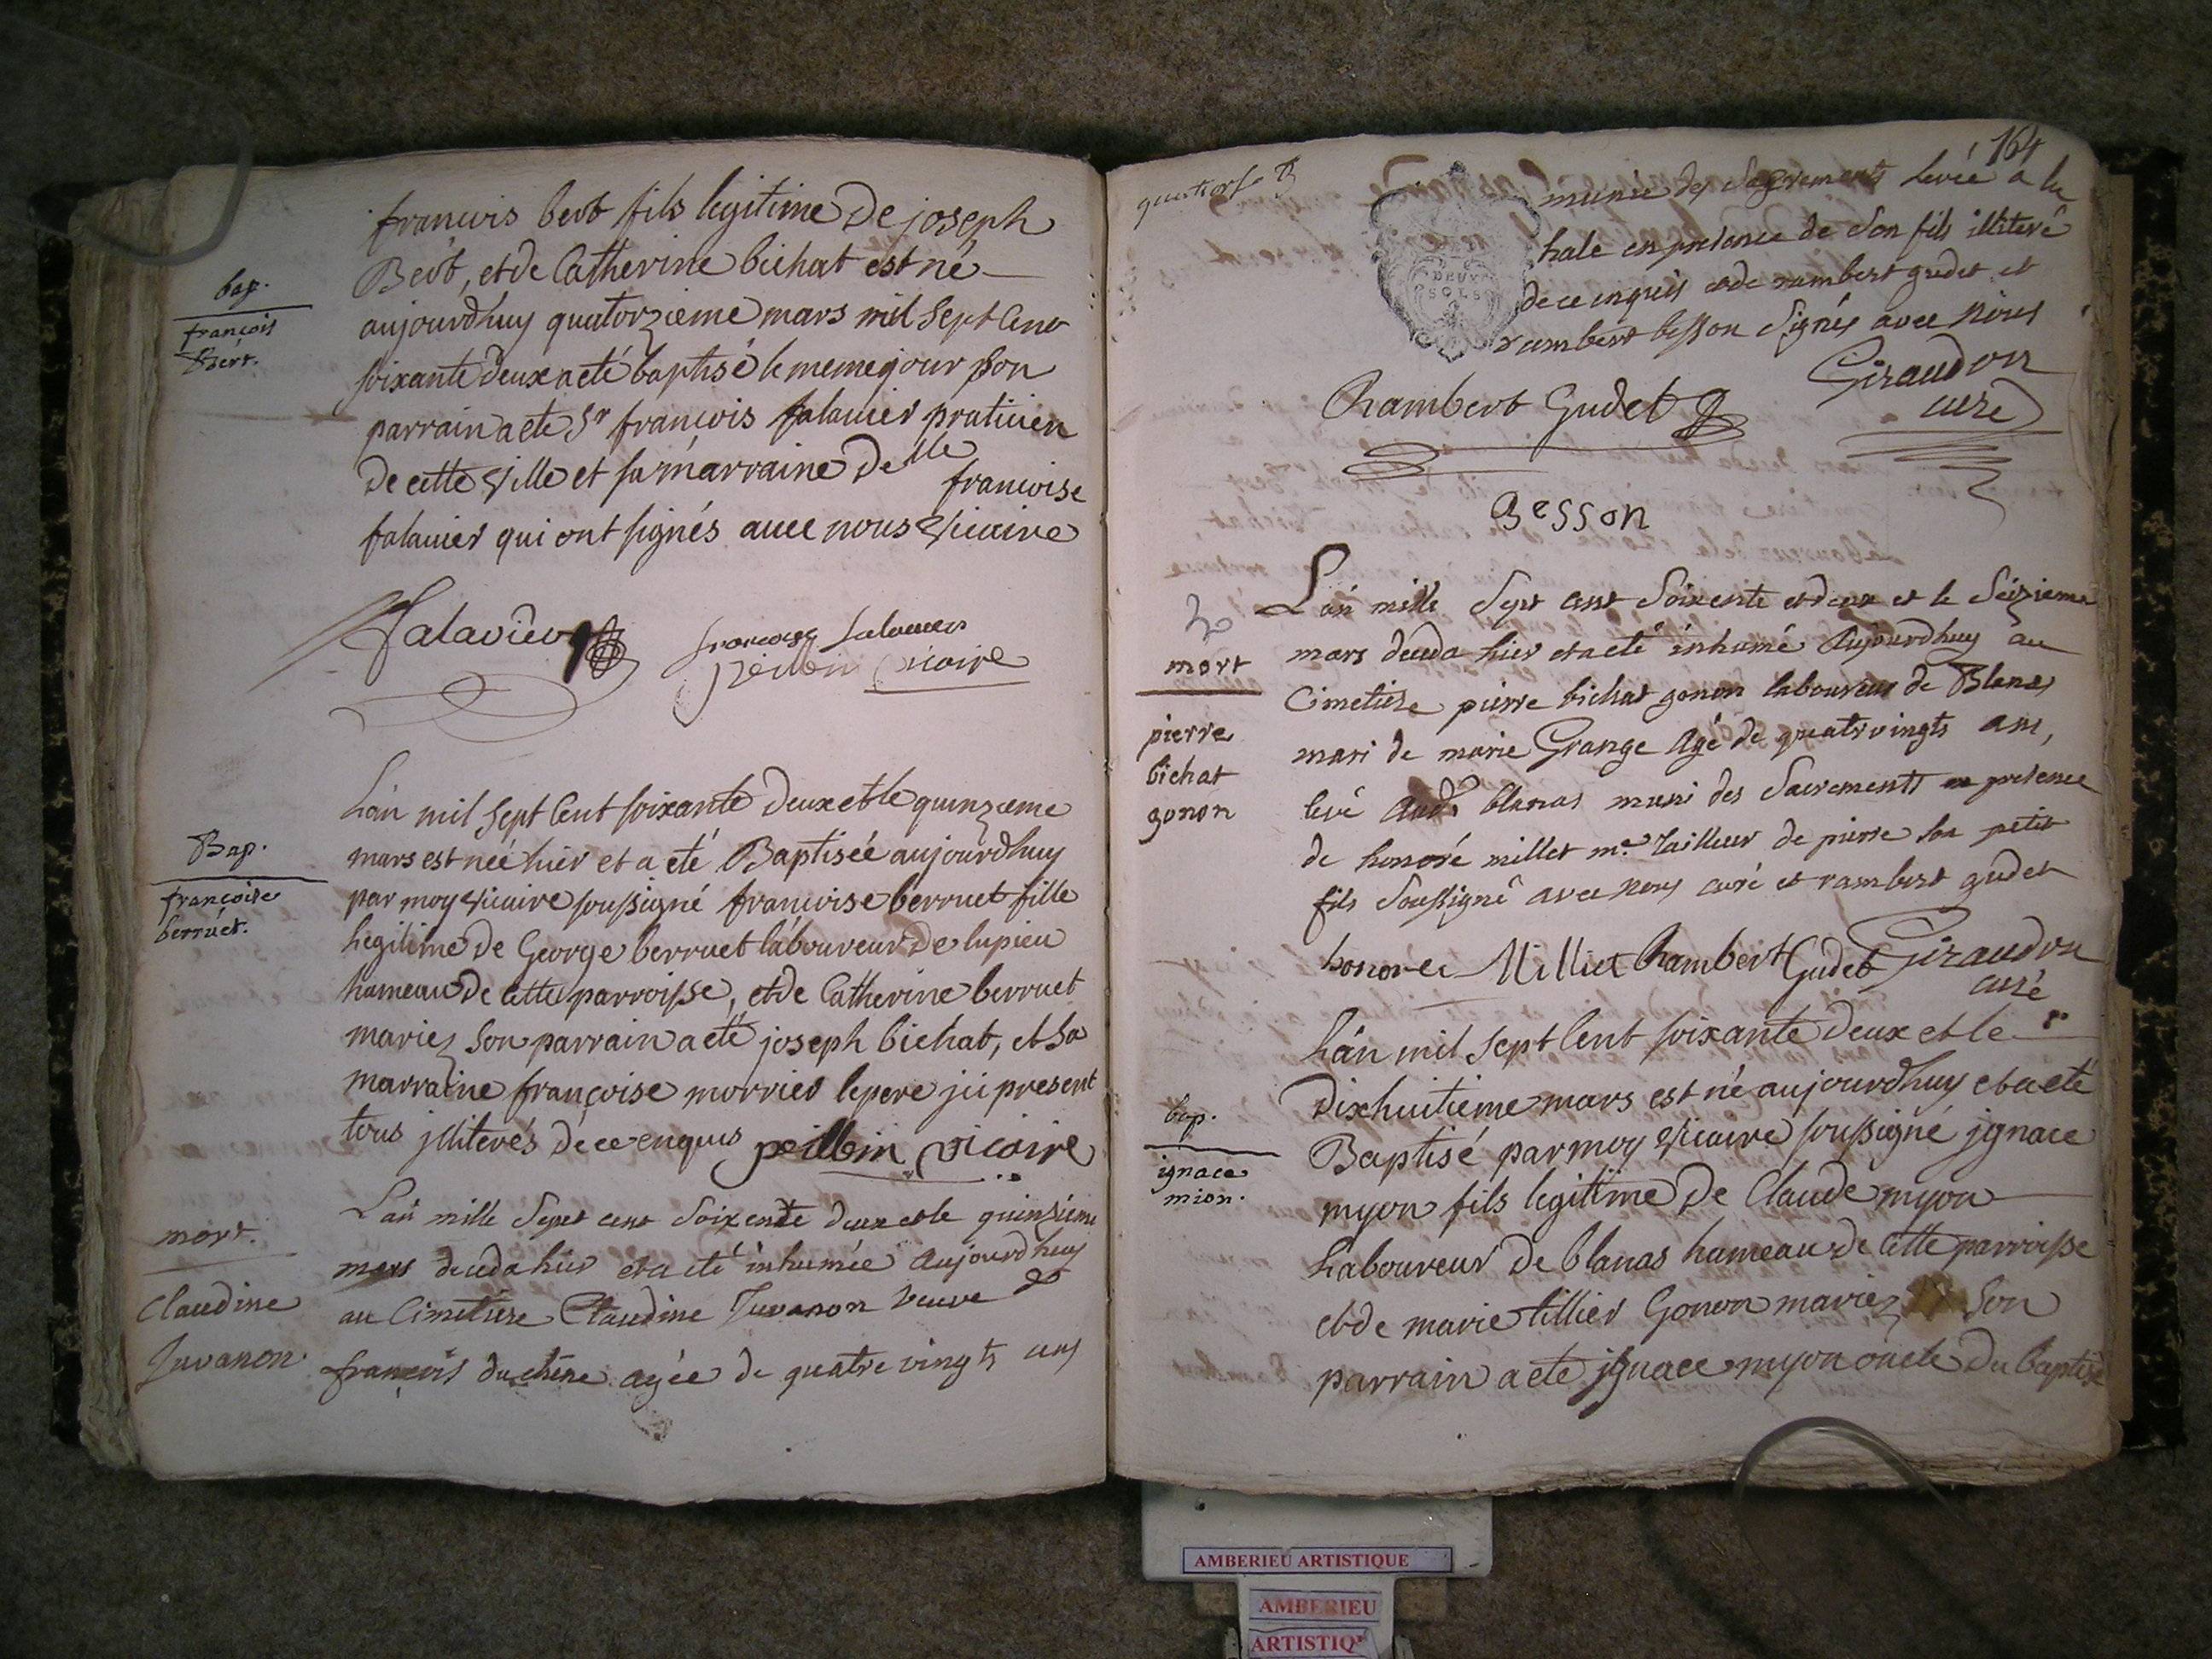 bap.
françois
Bert.
françois bert fils legitime de joseph
Bert, et de Catherine bichat est né
aujourdhuy quatorzieme mars mil sept Cent
soixante deux a eté baptisé le meme jour son
parrain a ete Sr françois falavier praticien
de cette ville et sa marraine Delle francoise
falavier qui ont signés avec nous vicaire
falavier francoise falavier
peillein vicaire
Bap.
françoise
berruet.
Lan mil sept Cent soixante deux et le quinzieme
mars est neé hier et a eté Baptiseé aujourdhuy
par moy vicaire soussigné francoise berruet fille
legitime de George berruet laboureur de lupieu
hameau de Cette parroisse, et de Catherine berruet
mariez son parrain a eté joseph bichat, et sa
marraine françoise morrier le pere ici present
tous jlliterés de ce enquis peillein vicaire
mort.
Claudine
Juvanon.
Lan mille Sept cent Soixente deux et le quinzieme
mars deceda hier et a eté inhumée Aujourdhuy
au Cimetiere Claudine Juvanon veuve de
françois duchêne agée de quatre vingts ans
164
quatorze
munie des Sacrements levée a la
hale en presence de Son fils illiteré
de ce enquis et de rambert gudet et
rambert besson Signés avec Nous
DEUX
SOLS
Rambert Gudet Giraudon
curé
Besson
2
mort
pierre
bichat
gonon
Lan mille Sept cent Soixente et deux et le Seizieme
mars deceda hier et a eté inhumé Aujourdhuy au
Cimetiere pierre bichat gonon laboureur de Blanas
mari de marie Grange Agé de quatrvingts ans,
levé audt blanas muni des Sacrements en presence
de honoré millet me tailleur de pierre son petit
fils Soussigné avec nous curé et rambert gudet
honore Milliet Rambert Gudet Giraudon
curé
bap.
ignace
mion.
Lan mil sept Cent soixante deux et le
dixhuitieme mars est né aujourdhuy et a eté
Baptisé par moy vicaire soussigné jgnace
myon fils legitime de Claude myon
laboureur de blanas hameau de Cette parroisse
et de marie tillier Gonon mariez Son
parrain a eté jgnace myon oncle du baptisé
AMBERIEU ARTISTIQUE
AMBERIEU
ARTISTIQ